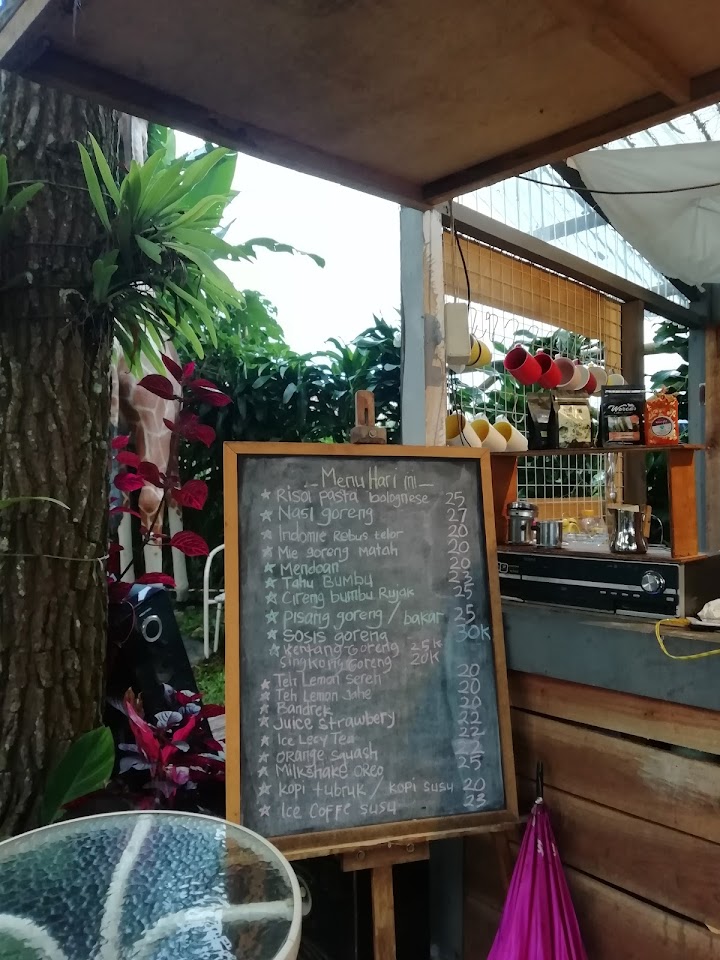 Menu Hari ini
Risol pasta bolognese 25
Nasi goreng 27
Indomie Rebus telor 20
Mie goreng Matah 20
Mendoan 20
Tahu Bumbu 23
Cireng bumbu Rujak 25
pisang goreng / bakar 25
Sosis goreng 30k
Kentang Goreng 25k
Singkong Goreng 20k
Teh Lemon Sereh 20
Teh Lemon Jahe 20
Bandrek 20
Juice Strawbery 22
Ice Lecy Tea 22
orange squash 22
Milkshake oreo 25
kopi tubruk / kopi susu 20
Ice Coffe susu 23